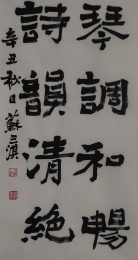 琴調和暢
詩韻清絕
辛丑秋日蘇